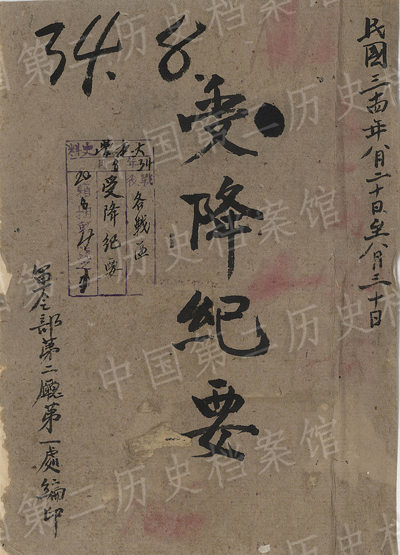 民國三十四年八月二十日至八月三十日
34. 8
受降紀要
各戰區
受降紀要
軍令部第二廳第一處編印
中国第二历史档案馆